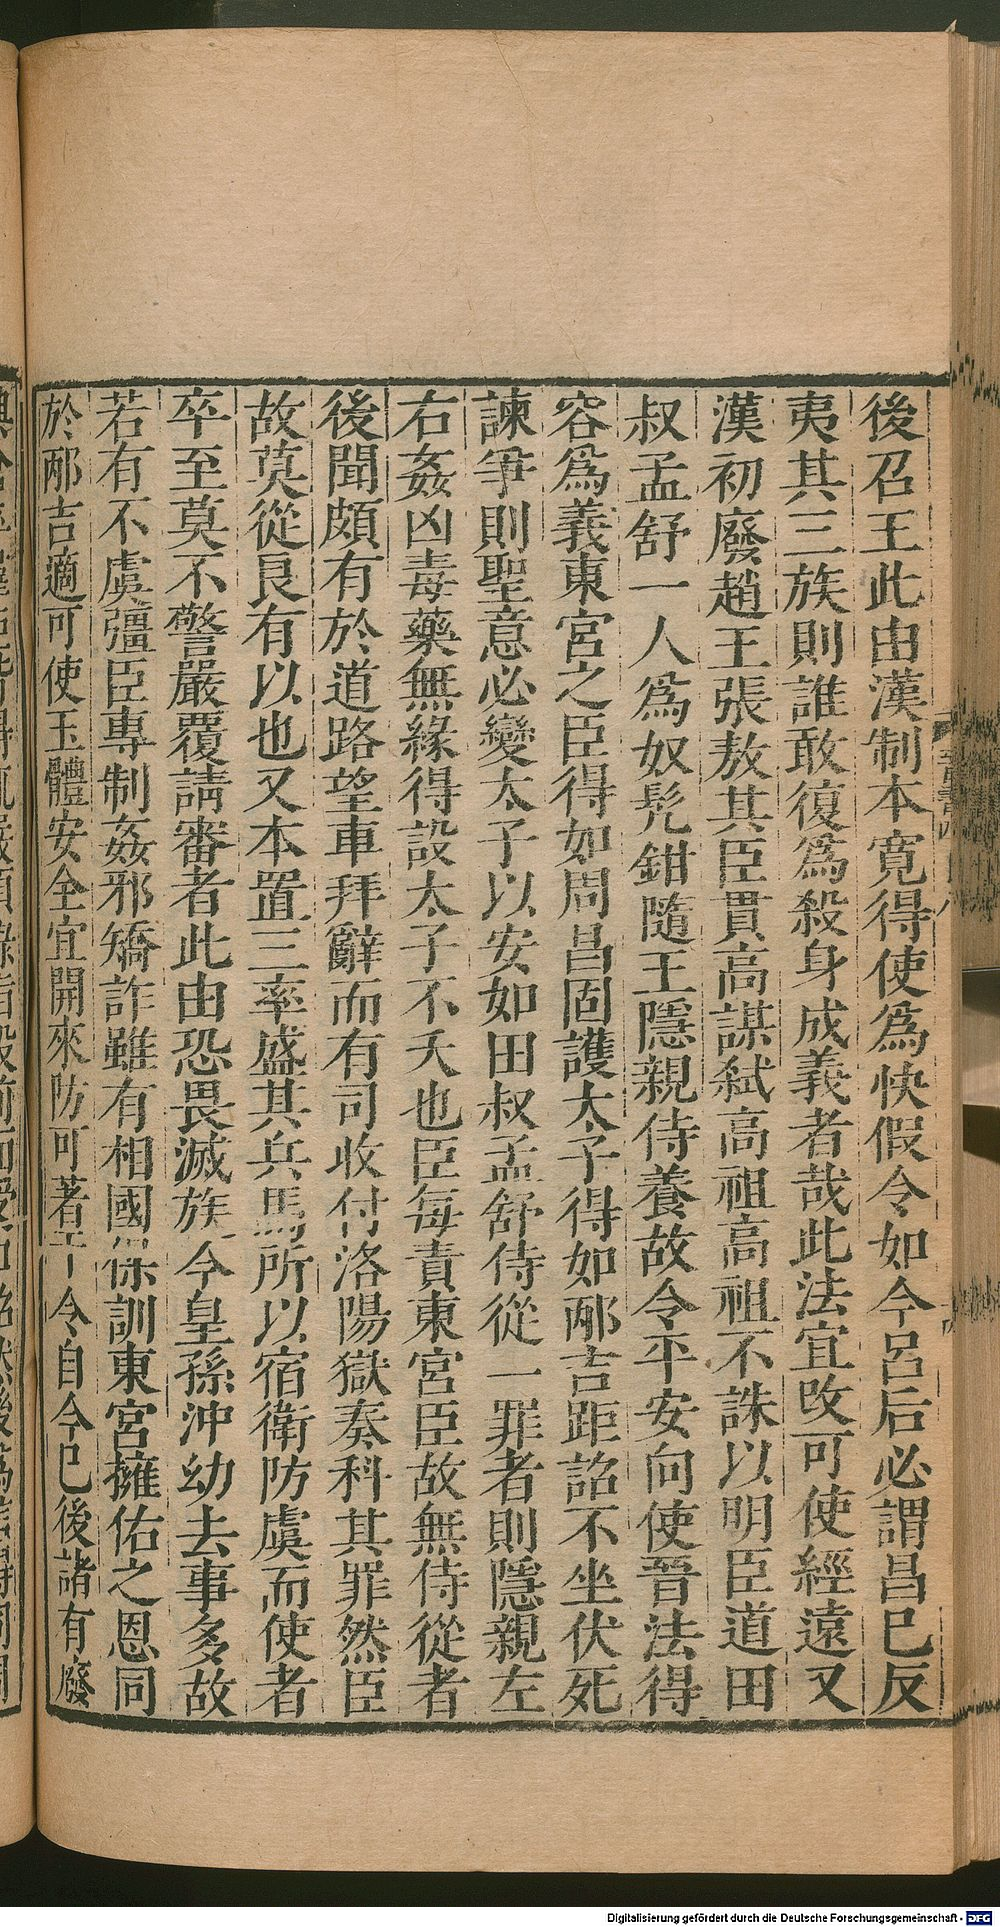 後召王此由漢制本寬得使爲快假令如今呂后必謂昌已反
夷其三族則誰敢復爲殺身成義者哉此法宜改可使經遠又
漢初廢趙王張敖其臣貫高謀弑高祖高祖不誅以明臣道田
叔孟舒一人爲奴髠鉗隨王隱親侍養故令平安向使晉法得
容爲義東宮之臣得如周昌固護太子得如邴吉距詔不坐伏死
諫爭則聖意必變太子以安如田叔孟舒侍從一罪者則隱親左
右姦凶毒藥無緣得設太子不夭也臣每責東宮臣故無侍從者
後聞頗有於道路望車拜辭而有司收付洛陽獄奏科其罪然臣
故莫從良有以也又本置三率盛其兵馬所以宿衛防虞而使者
卒至莫不警嚴覆請審者此由恐畏滅族今皇孫沖幼去事多故
若有不虞彊臣專制姦邪矯詐雖有相國保訓東宮擁佑之恩同
於邴吉適可使玉體安全宜開來防可著于今自今已後諸有廢
Digitalisierung gefördert durch die Deutsche Forschungsgemeinschaft - DFG